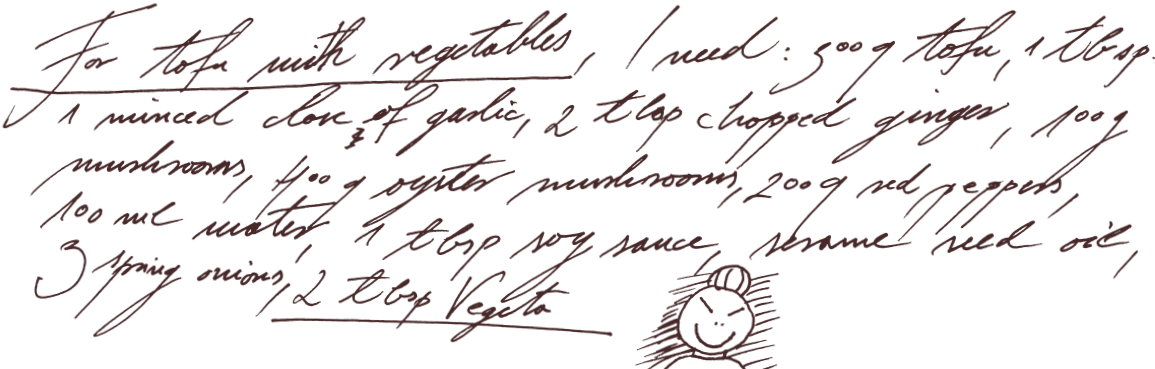 For tofu with vegetables, I need: 300g tofu, 1 tbsp.
1 minced clove of garlic, 2 tbsp chopped ginger, 100g
mushrooms, 400 g oyster mushrooms, 200g red peppers,
100 ml water, 1 tbsp soy sauce, sesame seed oil,
3 spring onions, 2 tbsp Vegeta